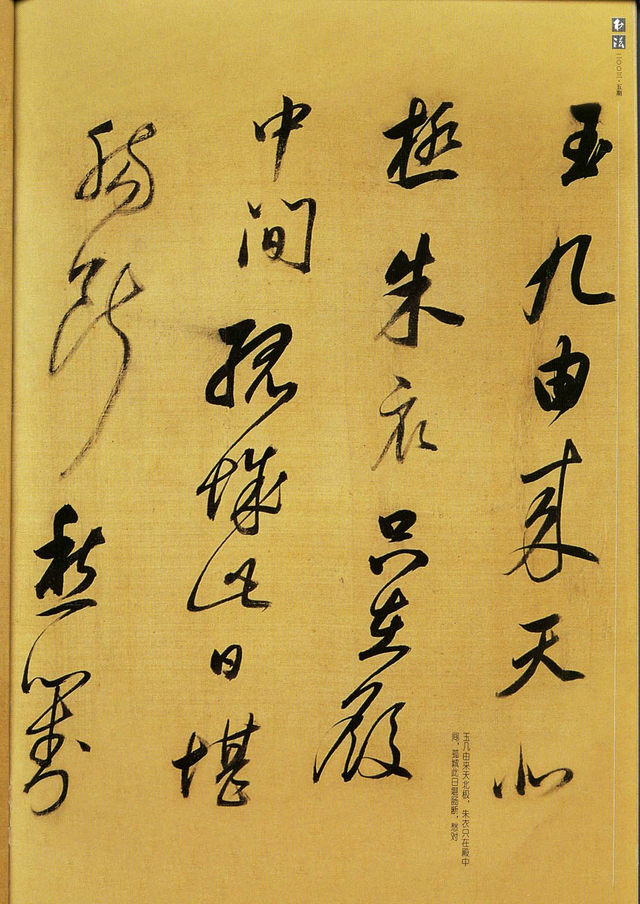 书法
二〇〇三·五期
玉几由来天北
极朱衣只在殿
中间孤城此日堪
肠断愁对
玉几由来天北极，朱衣只在殿中
间，孤城此日堪肠断，愁对